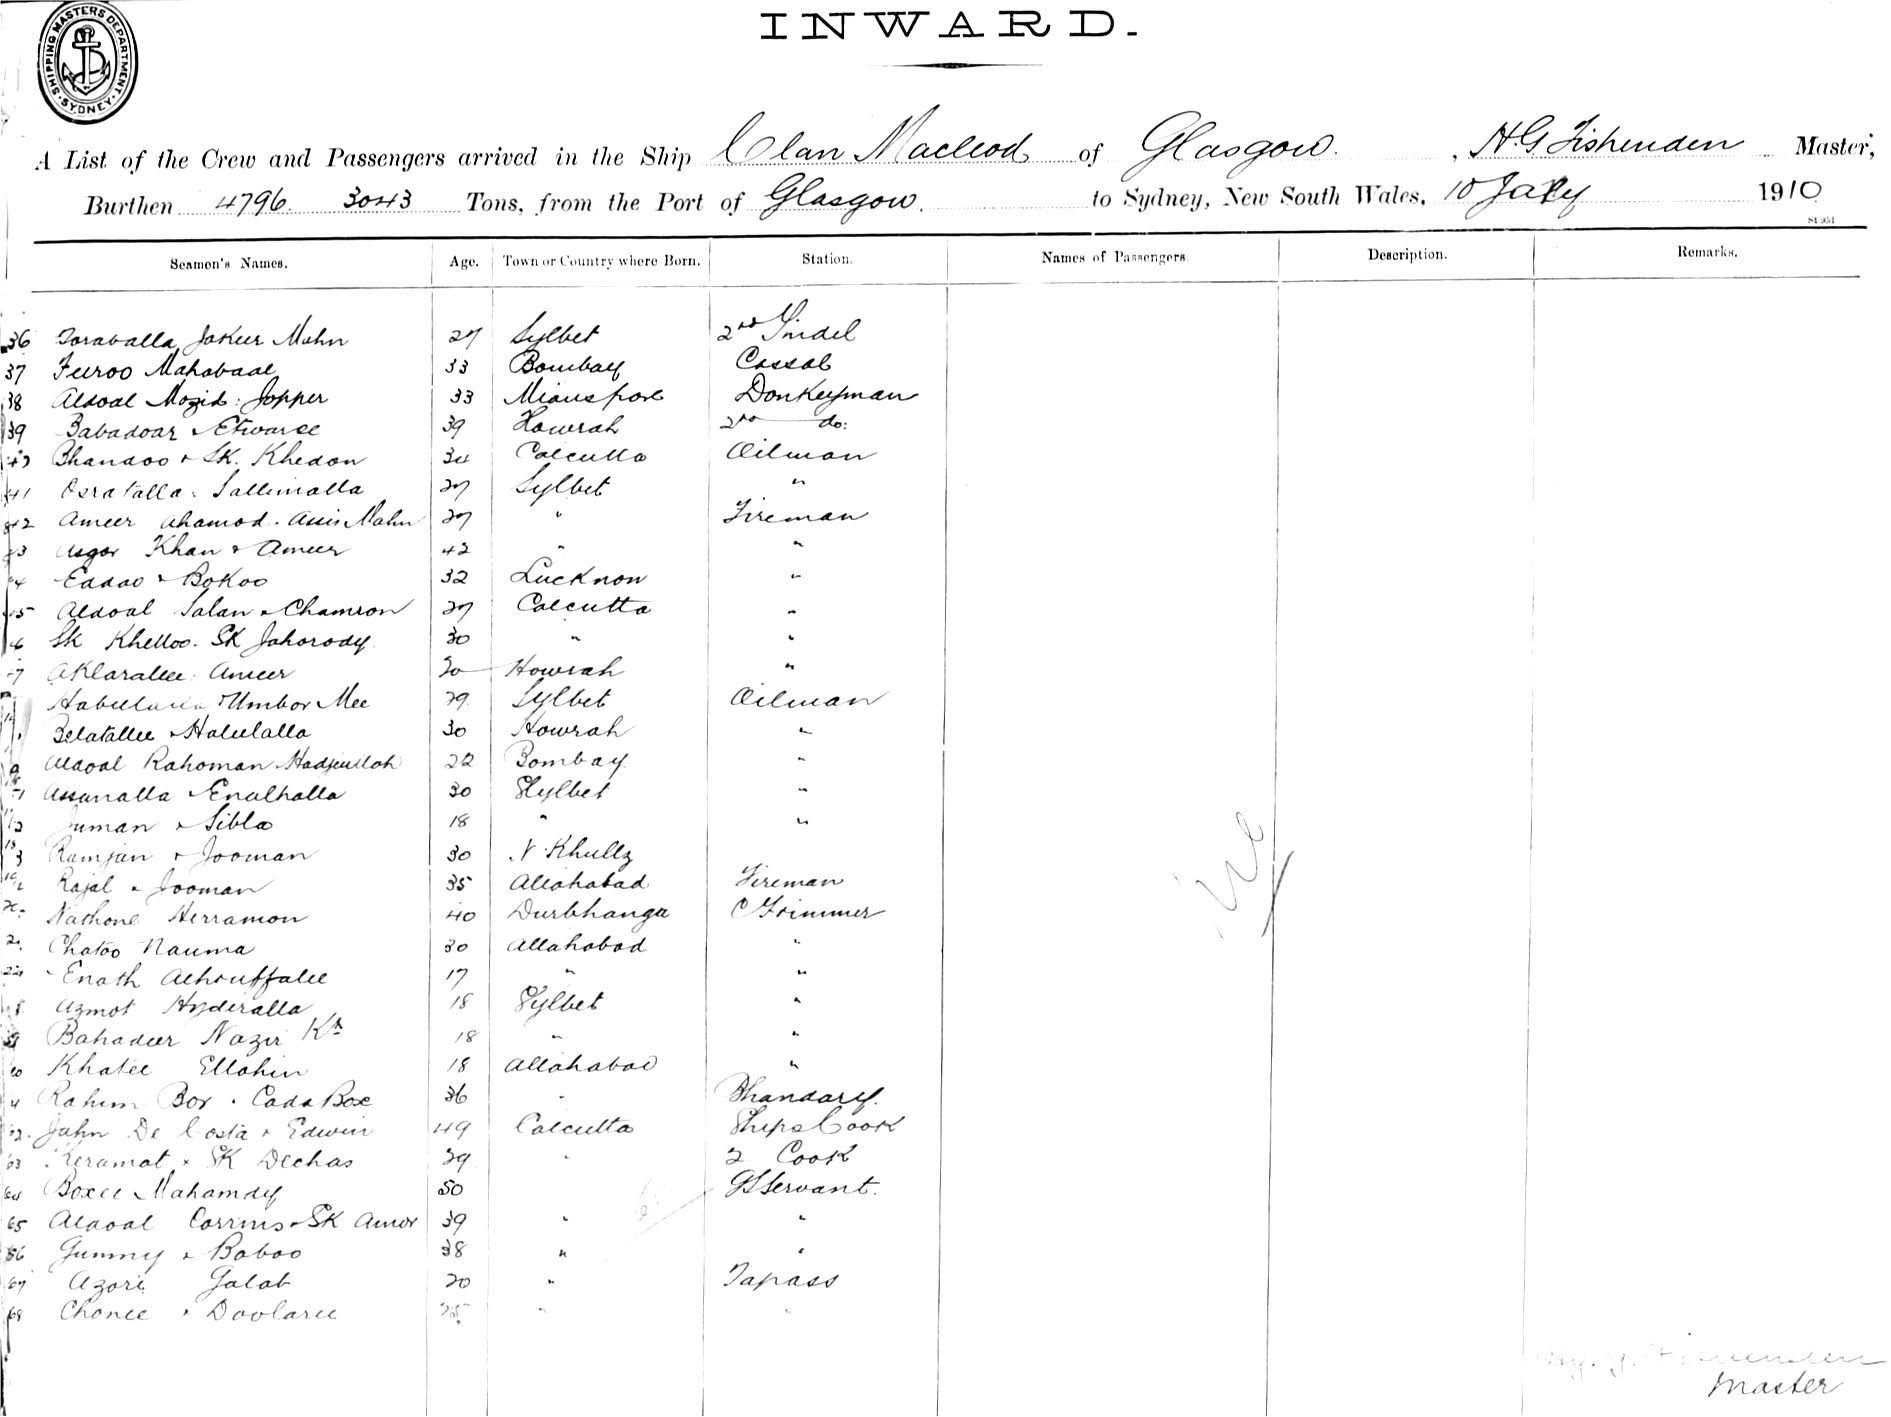 SHIPPING MASTERS DEPARTMENT. SYDNEY.
INWARD.
A List of the Crew and Passengers arrived in the Ship Clan Macleod of Glasgow. , H. G. Fishenden Master,
Burthen 4796. 3043 Tons, from the Port of Glasgow. to Sydney, New South Wales, 10 Jany 1910
St 951
Seamen's Names. Age. Town or Country where Born. Station. Names of Passengers. Description. Remarks.
36 Toraballa Jakur Mahn 27 Sylbet 2nd Tindel
37 Furoo Mahabaal 33 Bombay Cassab
38 Aldoal Mozid: Jopper 33 Donkeyman
39 Babadoar Etwaree 39 Howrah 2nd do:
40 Bhandoo + SK. Khedon 34 Calcutta Oilman
41 Osratalla. Sallimalla 27 Sylbet "
42 Ameer Ahamod. Assis Mahn 27 " Fireman
43 Asgar Khan + Ameer 42 " "
44 Eadao + Bokoo 32 Lucknon "
45 Aldoal Salan + Chamron 27 Calcutta "
46 SK Khelloo. SK Jahorody 30 " "
47 Aklarallee. Ameer 30 Howrah "
Umbor Mee 29. Sylbet Oilman
Belatallee + Halulalla 30 Howrah "
Aldoal Rahoman Hadjeullah 22 Bombay "
Assanalla + Enalhalla 30 Sylbet "
Juman + Sibla 18 " "
Ramjan + Jooman 30 N. Khully
Rajal + Jooman 35 Allahabad Fireman
Nathone Herramon 40 Durbhanga C Trimmer
Chatoo Nauma 30 Allahabad "
Enath Achruffalee 17 " "
Azmot Hyderalla 18 Sylbet "
Bahadur Nazir Kn 18 " "
60 Khatee Ellahin 18 Allahabad "
Rahim Box. Cada Box 36 " Bhandary.
John De Costa + Edwin 49 Calcutta Ships Cook
63 Keramat + SK Dechas 29 " 2 Cook
64 Boxee Mahamdy 50 GS Servant.
65 Aldoal Corrins SK Amor 39 " "
66 Gunny + Baboo 38 " "
67 Azori Galab 20 " Tapass
68 Chonee + Doolaree 25 " "
Master